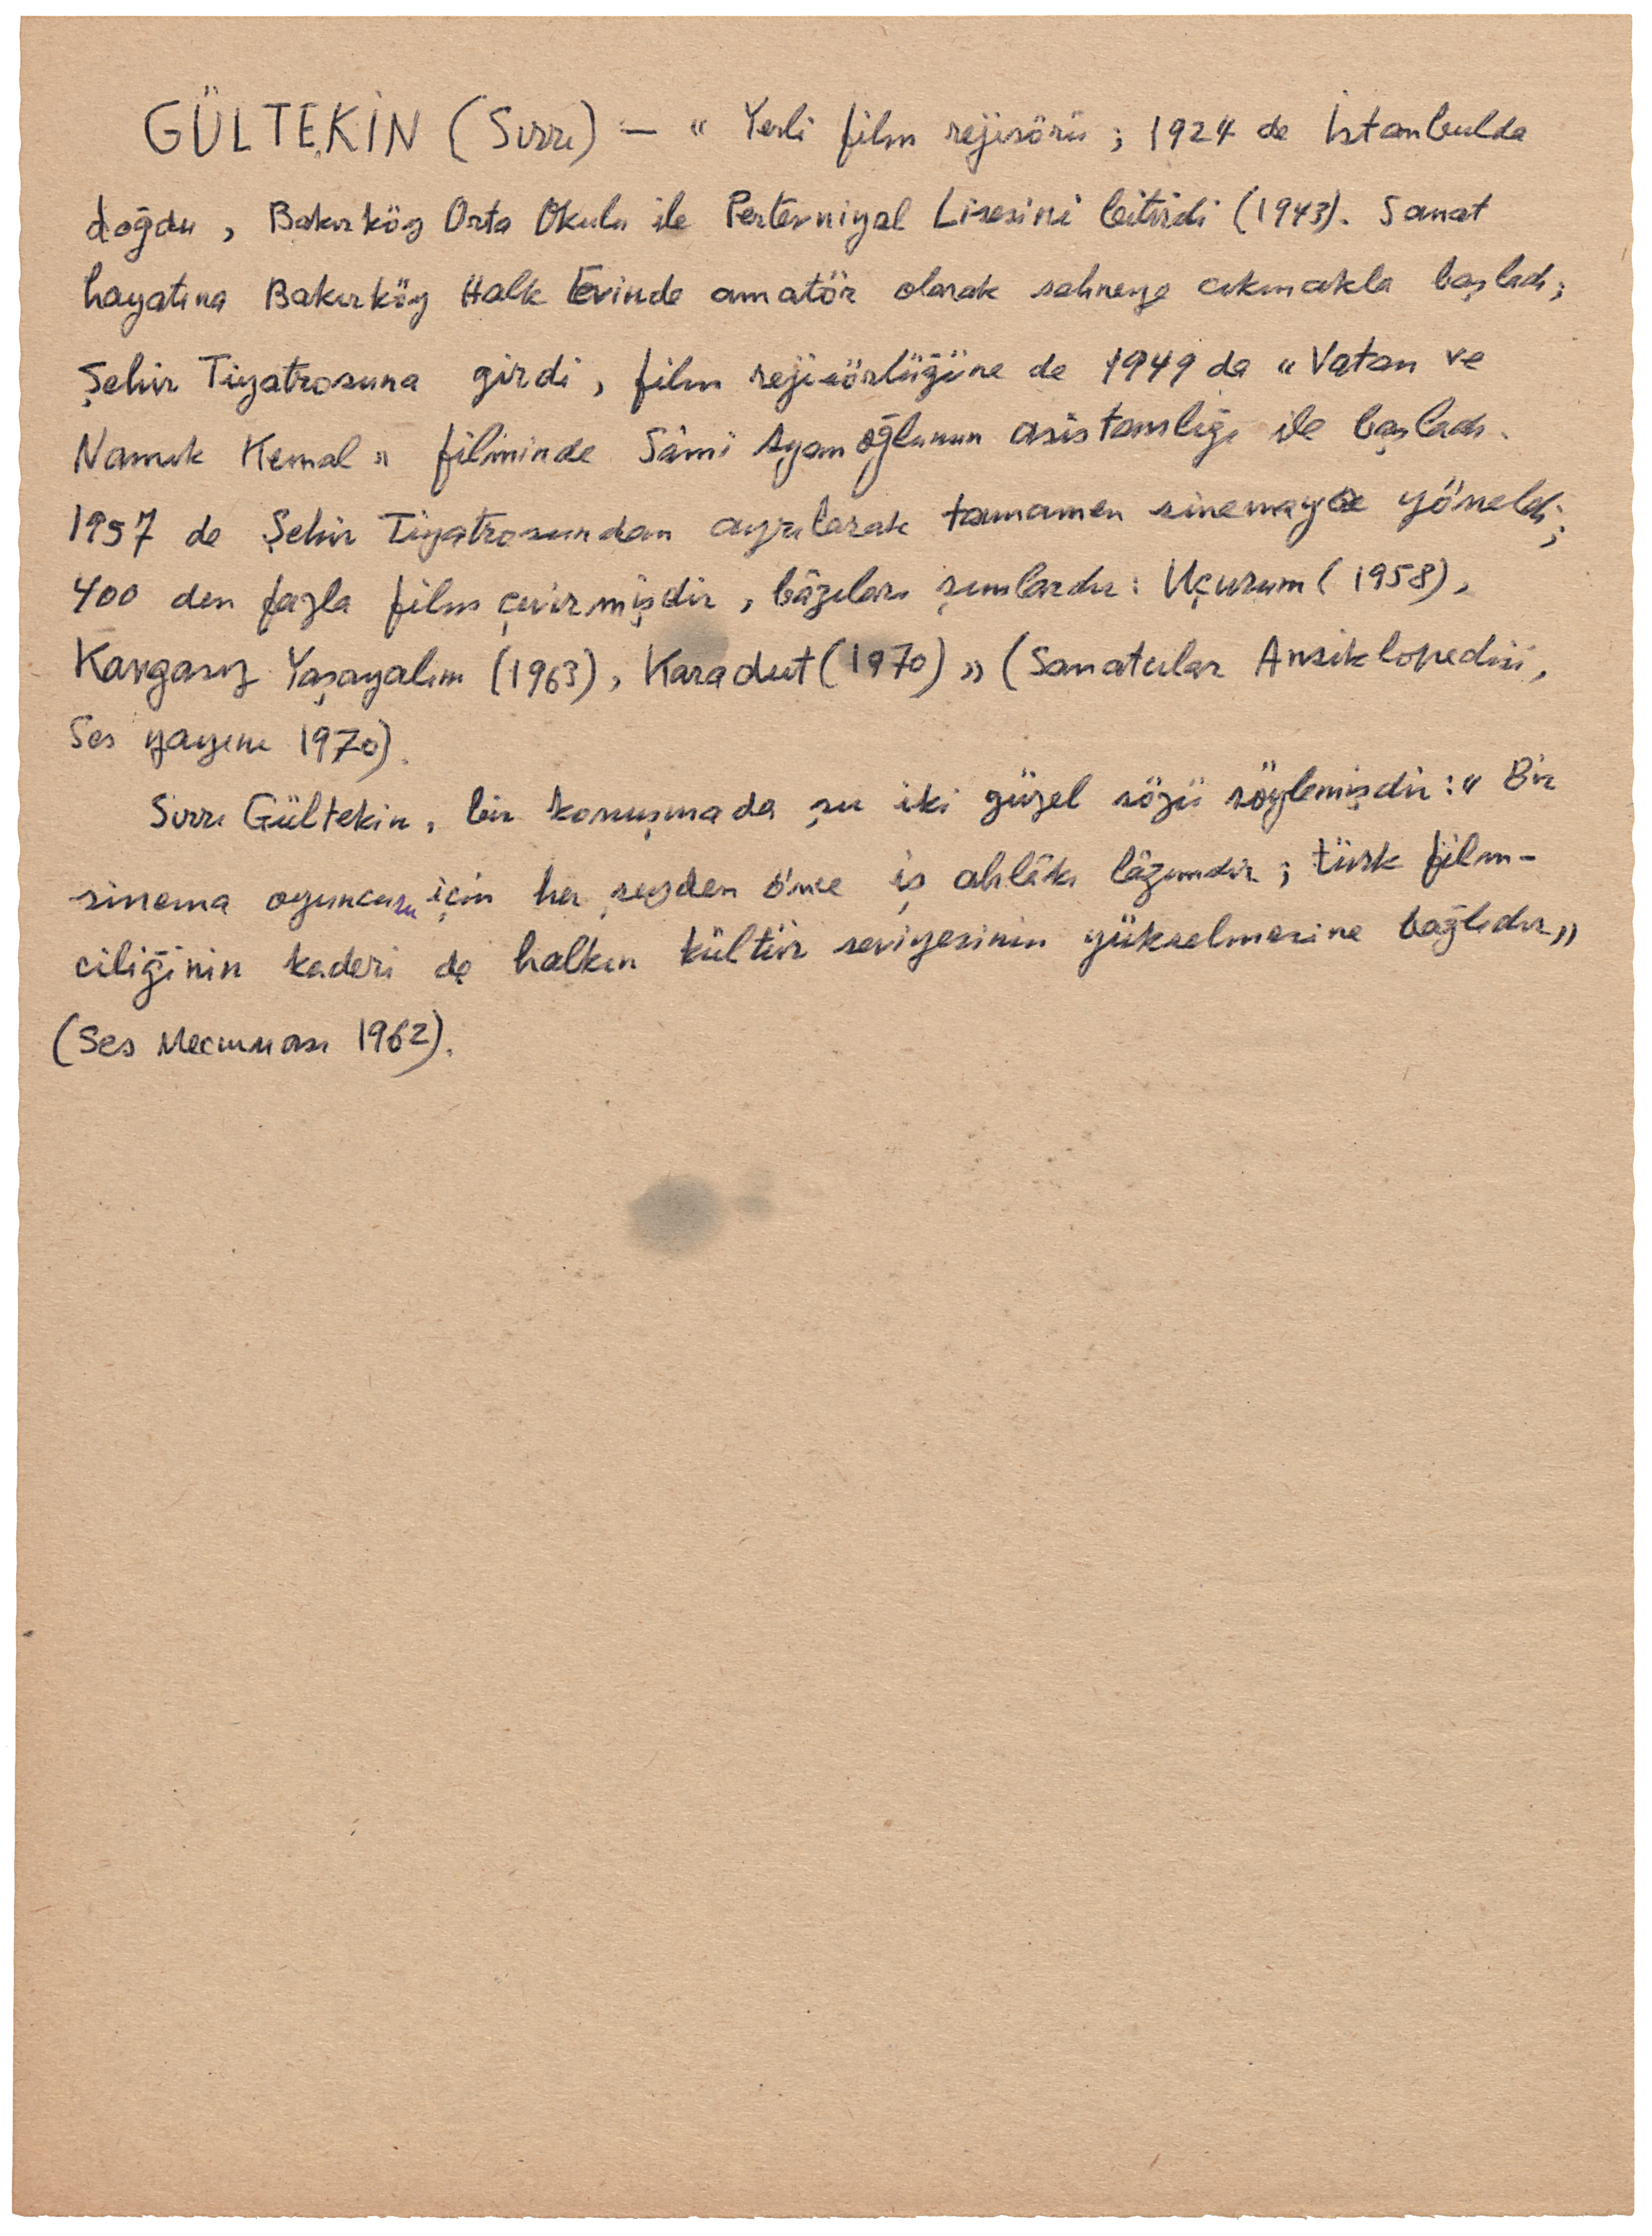 GÜLTEKİN (Sırrı) — « Yerli film rejisörü ; 1924 de İstanbulda
doğdu , Bakırköy Orta Okulu ile Pertevniyal Lisesini bitirdi (1943). Sanat
hayatına Bakırköy Halk Evinde amatör olarak sahneye cıkmakla başladı;
Şehir Tiyatrosuna girdi , film rejisörlüğüne de 1949 da « Vatan ve
Namık Kemal » filminde Sâmi Ayanoğlunun asistanslığı ile başladı.
1957 de Şehir Tiyatrosundan ayrılarak tamamen sinemaya yöneldi;
400 den fazla film çevirmişdir , bâzıları şunlardır : Uçurum ( 1958) ,
Kavgasız Yaşayalım (1963) , Karadut ( 1970) » (Sanatcılar Ansiklopedisi,
Ses yayını 1970).
Sırrı Gültekin , bir konuşmada şu iki güzel sözü söylemişdir : « Bir
sinema oyuncusu için her şeyden önce iş ahlâkı lâzımdır ; türk film-
ciliğinin kaderi de halkın kültür seviyesinin yükselmesine bağlıdır»
(Ses Mecmuası 1962).